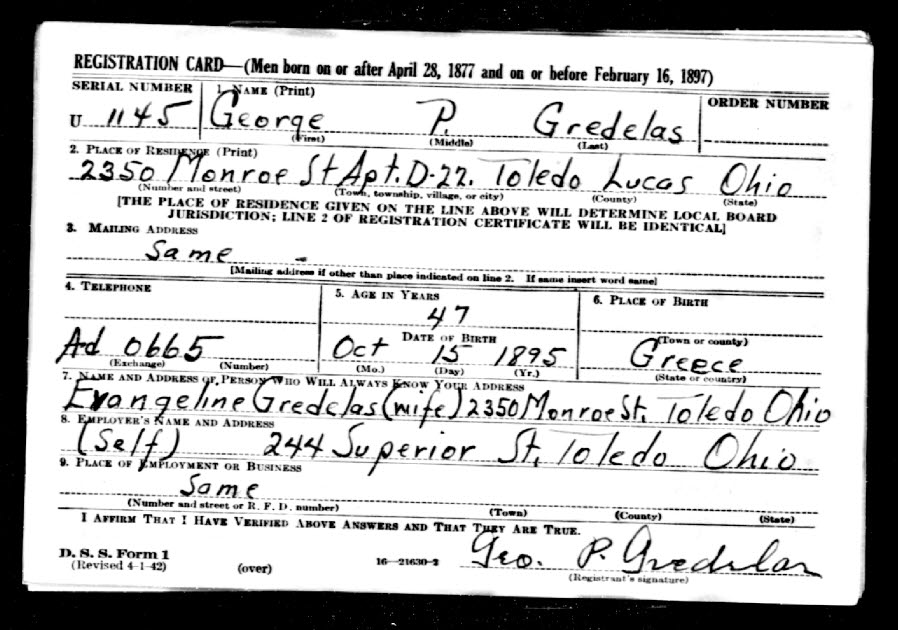 REGISTRATION CARD—(Men born on or after April 28, 1877 and on or before February 16, 1897)
SERIAL NUMBER 1. NAME (Print) ORDER NUMBER
U 1145 George P. Gredelas
(First) (Middle) (Last)
2. PLACE OF RESIDENCE (Print)
2350 Monroe St Apt. D-22. Toledo Lucas Ohio
(Number and street) (Town, township, village, or city) (County) (State)
[THE PLACE OF RESIDENCE GIVEN ON THE LINE ABOVE WILL DETERMINE LOCAL BOARD
JURISDICTION; LINE 2 OF REGISTRATION CERTIFICATE WILL BE IDENTICAL]
3. MAILING ADDRESS
Same
[Mailing address if other than place indicated on line 2. If same insert word same]
4. TELEPHONE 5. AGE IN YEARS 6. PLACE OF BIRTH
47
DATE OF BIRTH (Town or county)
Ad 0665 Oct 15 1895 Greece
(Exchange) (Number) (Mo.) (Day) (Yr.) (State or country)
7. NAME AND ADDRESS OF PERSON WHO WILL ALWAYS KNOW YOUR ADDRESS
Evangeline Gredelas (wife) 2350 Monroe St, Toledo Ohio
8. EMPLOYER'S NAME AND ADDRESS
(Self) 244 Superior St, Toledo Ohio
9. PLACE OF EMPLOYMENT OR BUSINESS
Same
(Number and street or R. F. D. number) (Town) (County) (State)
I AFFIRM THAT I HAVE VERIFIED ABOVE ANSWERS AND THAT THEY ARE TRUE.
D. S. S. Form 1
(Revised 4-1-42) (over) 16—21630-2 Geo. P. Gredelas
(Registrant's signature)